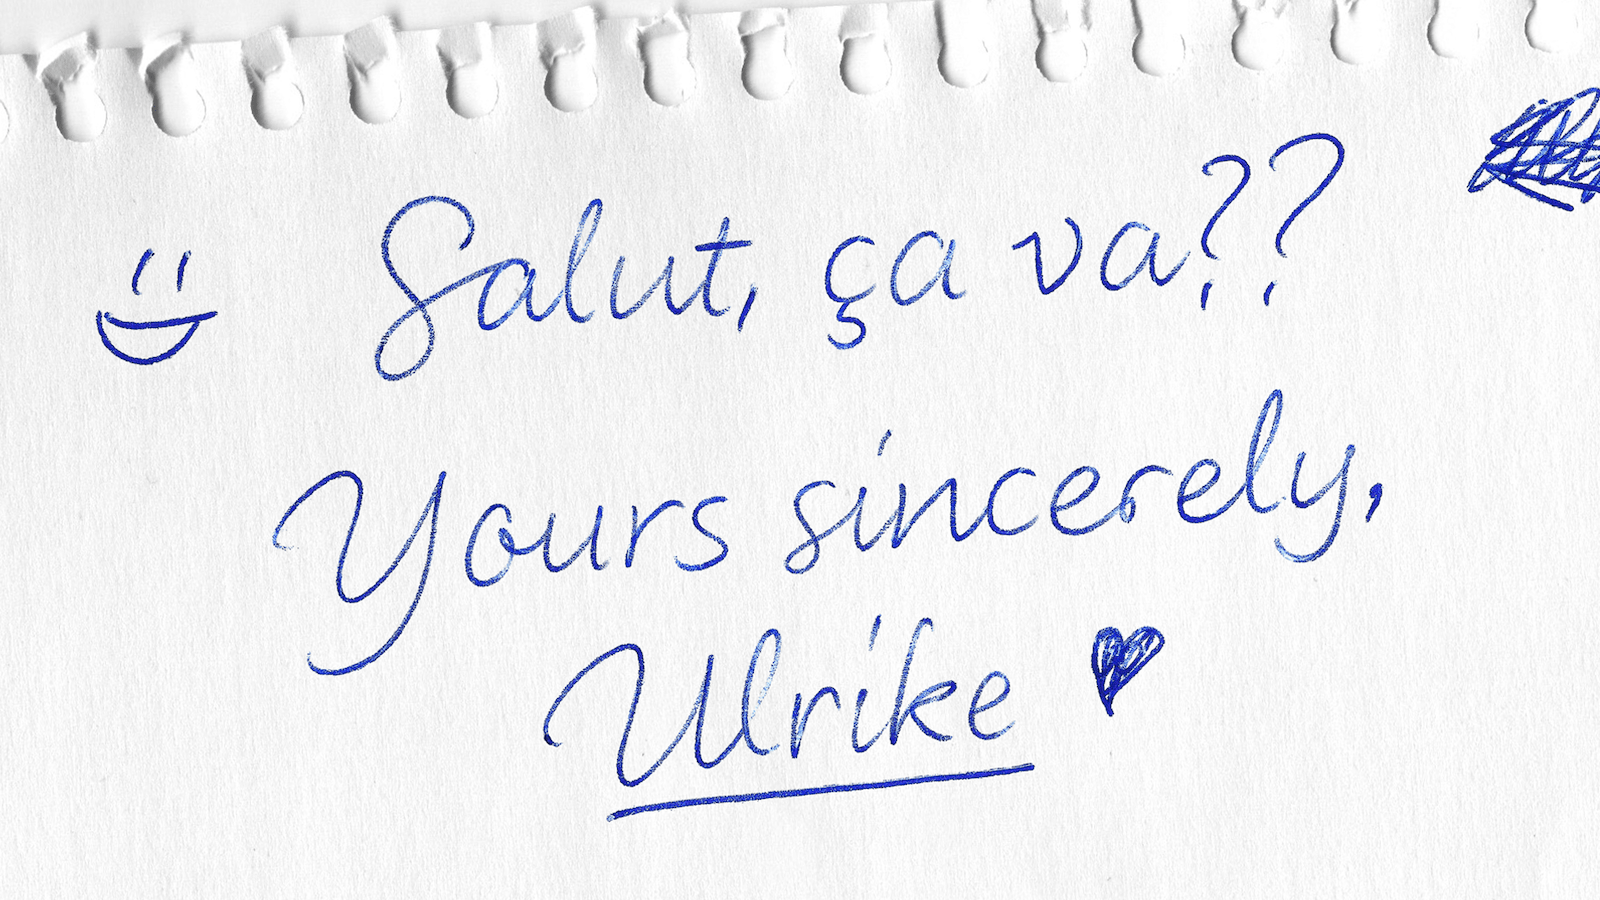 Salut, ça va??
Yours sincerely,
Ulrike